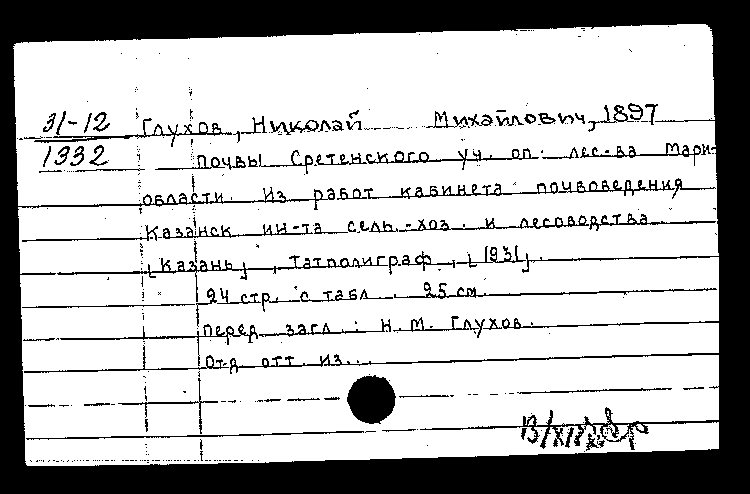 31-12 Глухов, Николай Михайлович, 1897
1932 почвы Сретенского уч. оп. лес-ва Мари-
области. Из работ кабинета почвоведения
Казанск ин-та сель.-хоз. и лесоводства.
[Казань], Татполиграф, [1931].
24 стр. с табл. 25 см.
перед загл.: Н. М. Глухов.
Отд отт. из...